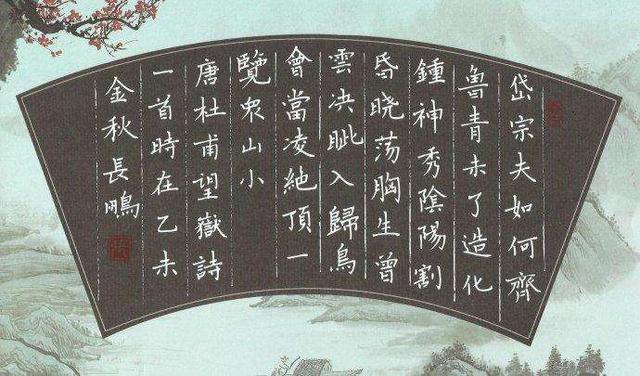 岱宗夫如何齊
魯青未了造化
鍾神秀陰陽割
昏晓荡胸生曾
雲决眦入歸鳥
會當凌絶頂一
覽衆山小
唐杜甫望嶽詩
一首時在乙未
金秋長鵬